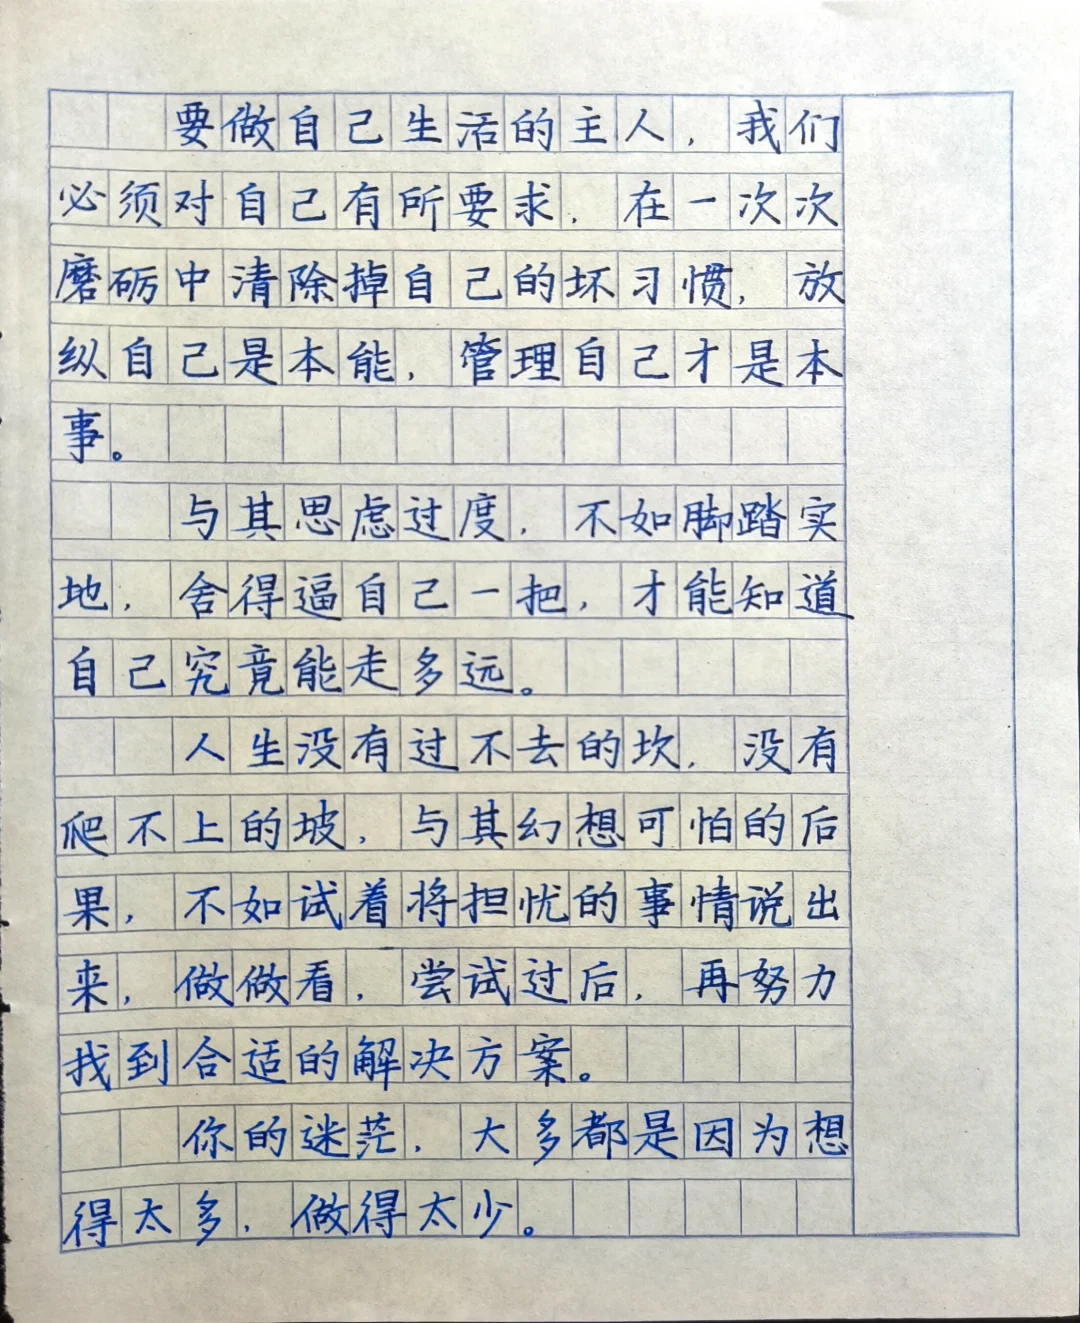 要做自己生活的主人，我们
必须对自己有所要求，在一次次
磨砺中清除掉自己的坏习惯，放
纵自己是本能，管理自己才是本
事。
与其思虑过度，不如脚踏实
地，舍得逼自己一把，才能知道
自己究竟能走多远。
人生没有过不去的坎，没有
爬不上的坡，与其幻想可怕的后
果，不如试着将担忧的事情说出
来，做做看，尝试过后，再努力
找到合适的解决方案。
你的迷茫，大多都是因为想
得太多，做得太少。